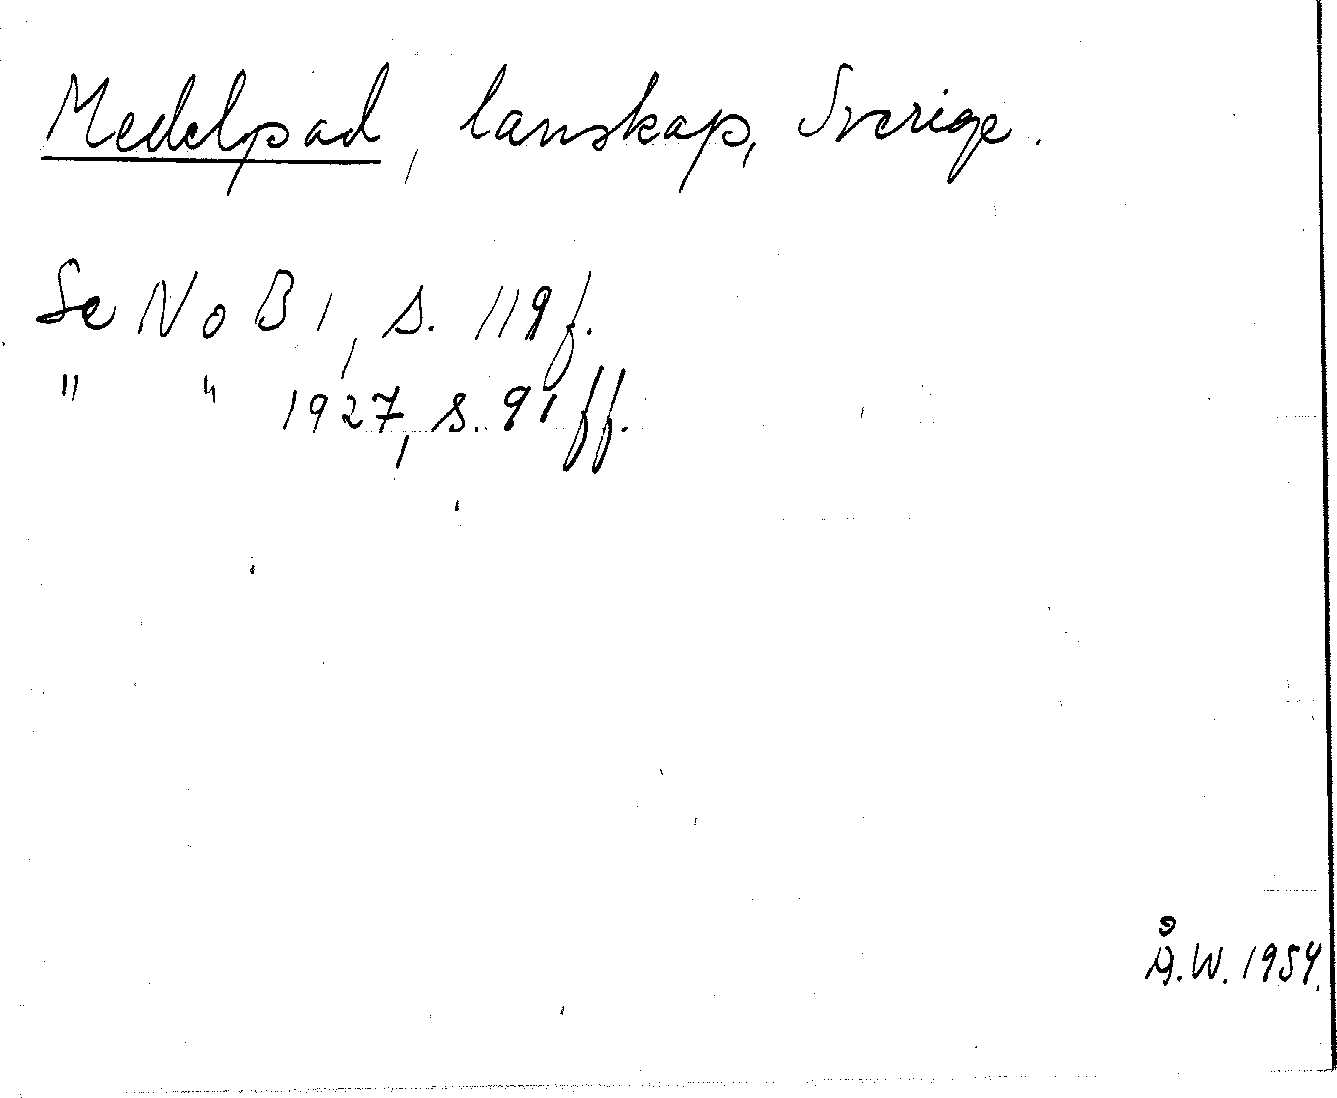 Medelpad, lanskap, Sverige.
Se NoB 1, s. 119 f.
" " 1927, s. 91 ff.
Å.W. 1954.